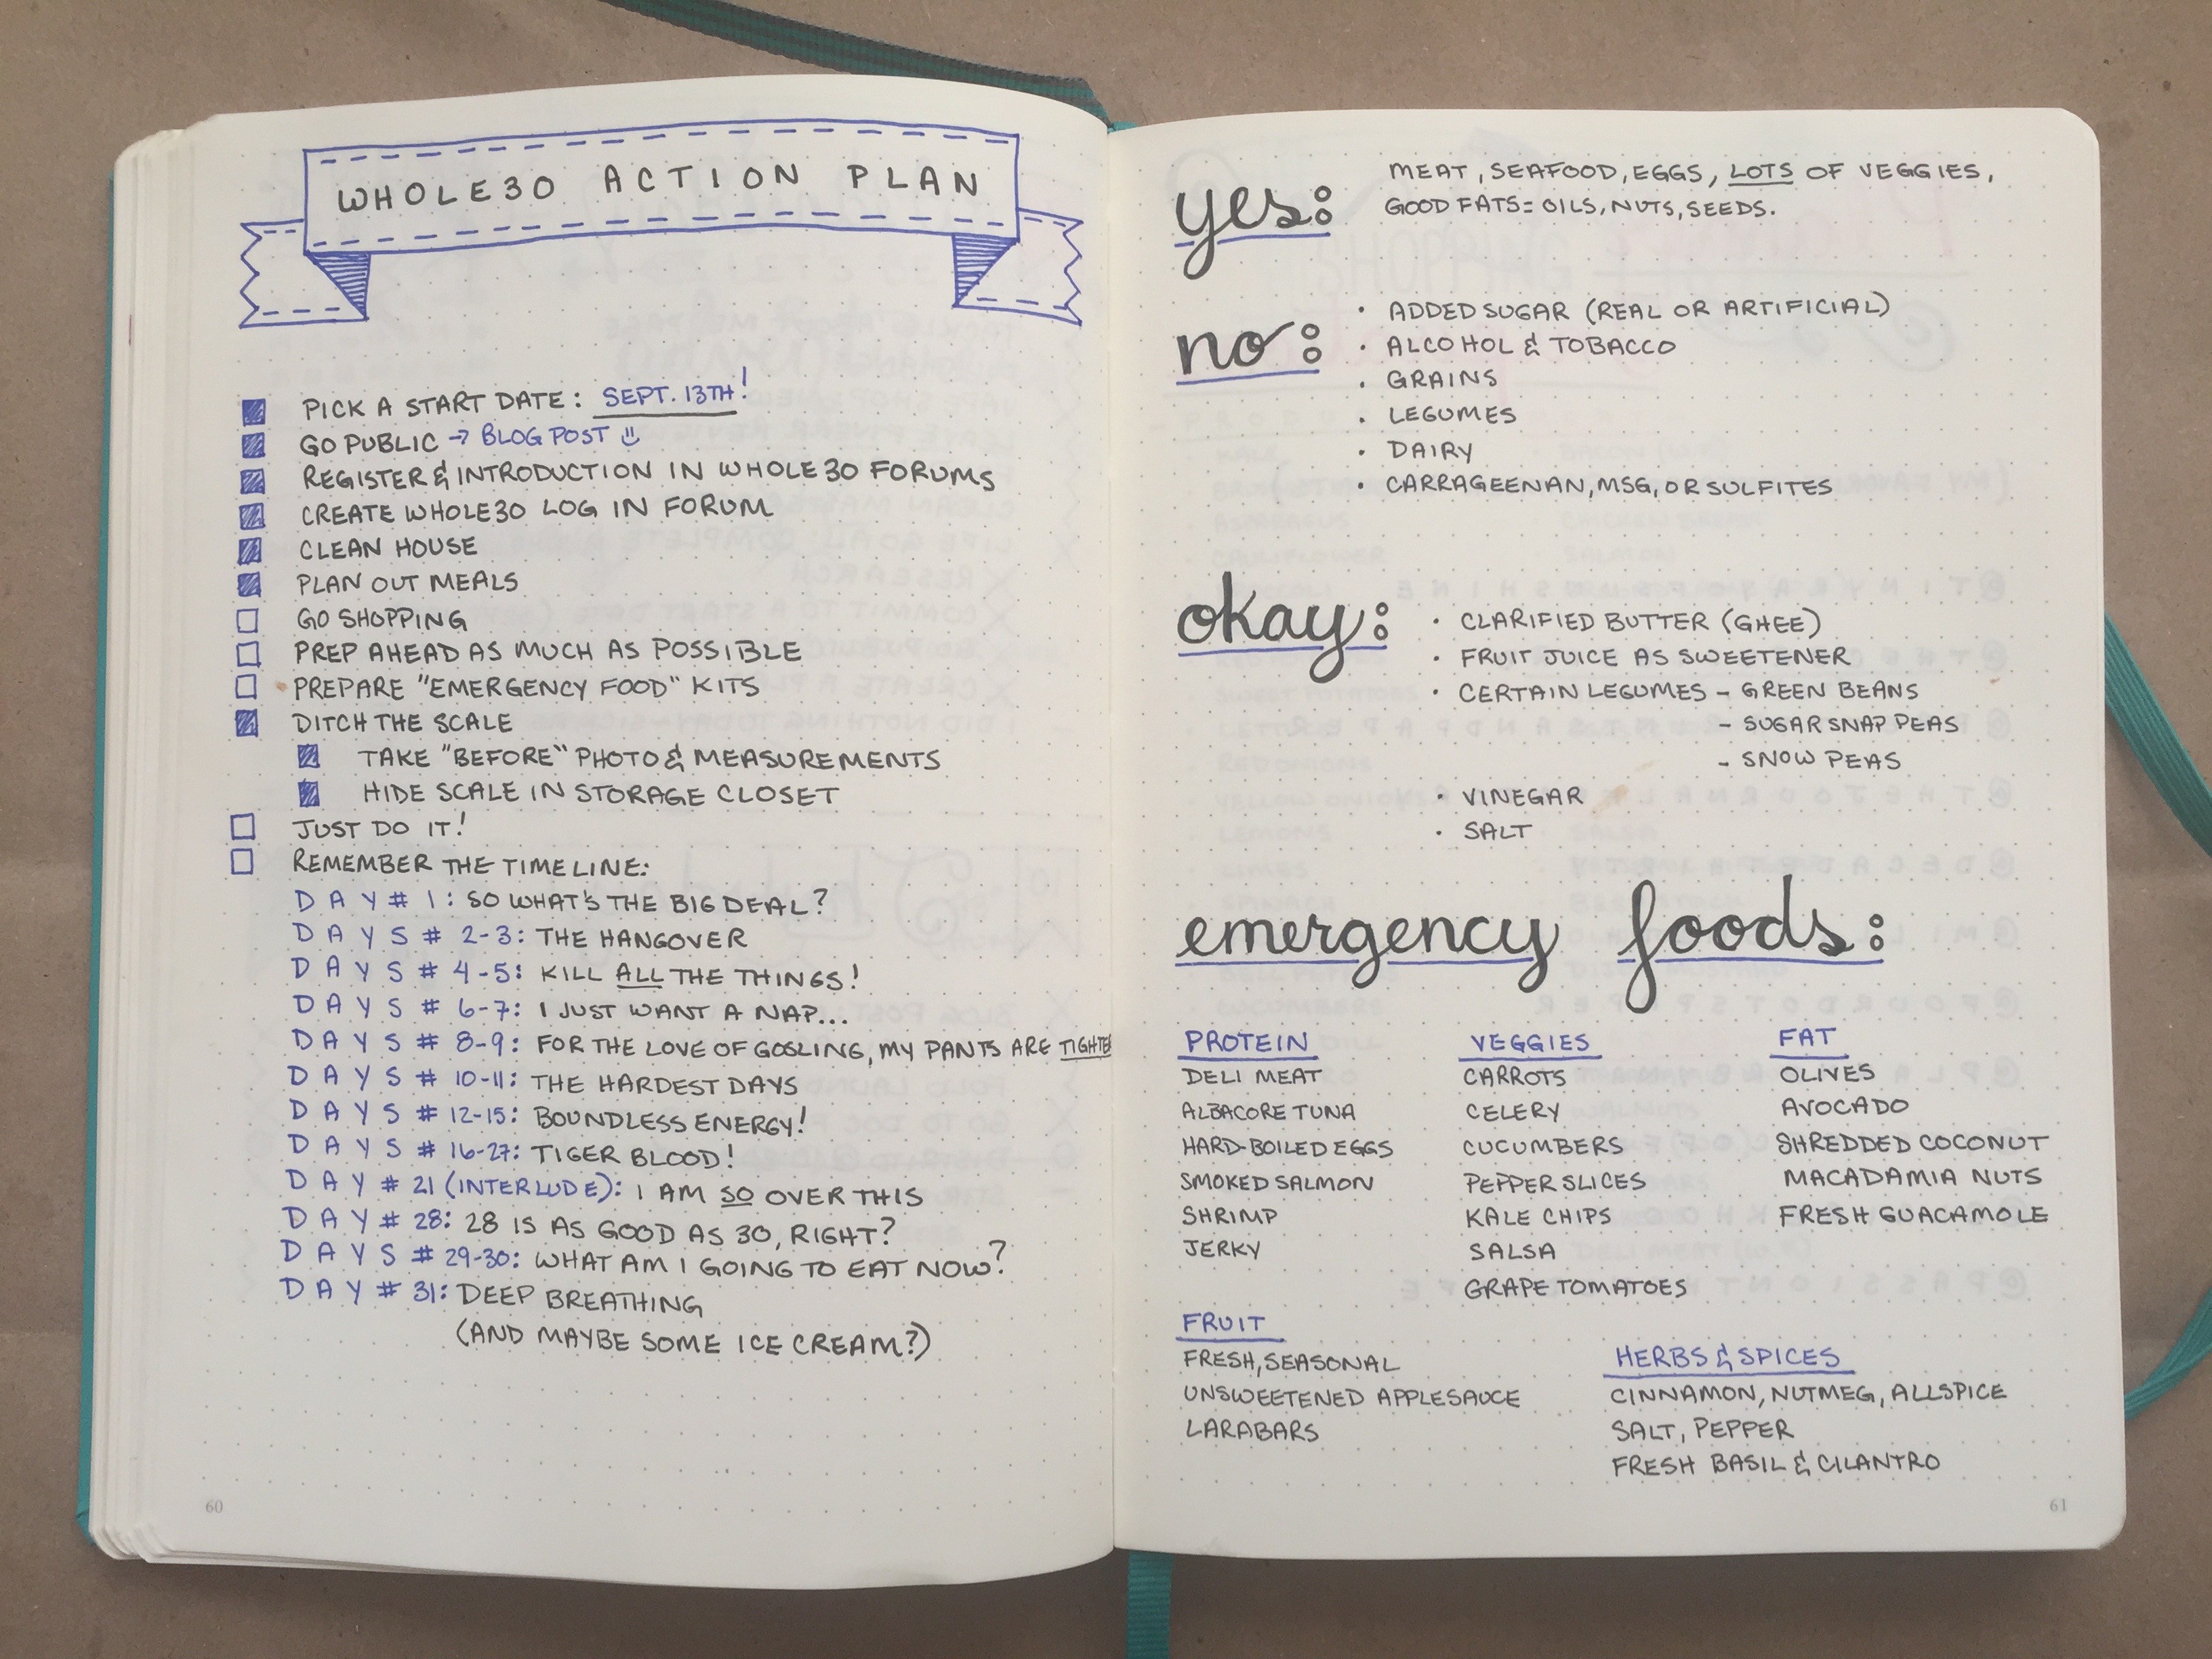 WHOLE30 ACTION PLAN
PICK A START DATE: SEPT. 13TH!
GO PUBLIC → BLOG POST
REGISTER & INTRODUCTION IN WHOLE30 FORUMS
CREATE WHOLE30 LOG IN FORUM
CLEAN HOUSE
PLAN OUT MEALS
GO SHOPPING
PREP AHEAD AS MUCH AS POSSIBLE
PREPARE "EMERGENCY FOOD" KITS
DITCH THE SCALE
TAKE "BEFORE" PHOTO & MEASUREMENTS
HIDE SCALE IN STORAGE CLOSET
JUST DO IT!
REMEMBER THE TIMELINE:
DAY # 1: SO WHAT'S THE BIG DEAL?
DAYS # 2-3: THE HANGOVER
DAYS # 4-5: KILL ALL THE THINGS!
DAYS # 6-7: I JUST WANT A NAP...
DAYS # 8-9: FOR THE LOVE OF GOSLING, MY PANTS ARE
DAYS # 10-11: THE HARDEST DAYS
DAYS # 12-15: BOUNDLESS ENERGY!
DAYS # 16-27: TIGER BLOOD!
DAY # 21 (INTERLUDE): I AM SO OVER THIS
DAY # 28: 28 IS AS GOOD AS 30, RIGHT?
DAYS # 29-30: WHAT AM I GOING TO EAT NOW?
DAY # 31: DEEP BREATHING
(AND MAYBE SOME ICE CREAM?)
60
yes:
MEAT, SEAFOOD, EGGS, LOTS OF VEGGIES,
GOOD FATS = OILS, NUTS, SEEDS.
no:
• ADDED SUGAR (REAL OR ARTIFICIAL)
• ALCOHOL & TOBACCO
• GRAINS
• LEGUMES
• DAIRY
• CARRAGEENAN, MSG, OR SULFITES
okay:
• CLARIFIED BUTTER (GHEE)
• FRUIT JUICE AS SWEETENER
• CERTAIN LEGUMES - GREEN BEANS
- SUGAR SNAP PEAS
- SNOW PEAS
• VINEGAR
• SALT
emergency foods:
PROTEIN
DELI MEAT
ALBACORE TUNA
HARD-BOILED EGGS
SMOKED SALMON
SHRIMP
JERKY
VEGGIES
CARROTS
CELERY
CUCUMBERS
PEPPER SLICES
KALE CHIPS
SALSA
GRAPE TOMATOES
FAT
OLIVES
AVOCADO
SHREDDED COCONUT
MACADAMIA NUTS
FRESH GUACAMOLE
FRUIT
FRESH, SEASONAL
UNSWEETENED APPLESAUCE
LARABARS
HERBS & SPICES
CINNAMON, NUTMEG, ALLSPICE
SALT, PEPPER
FRESH BASIL & CILANTRO
61